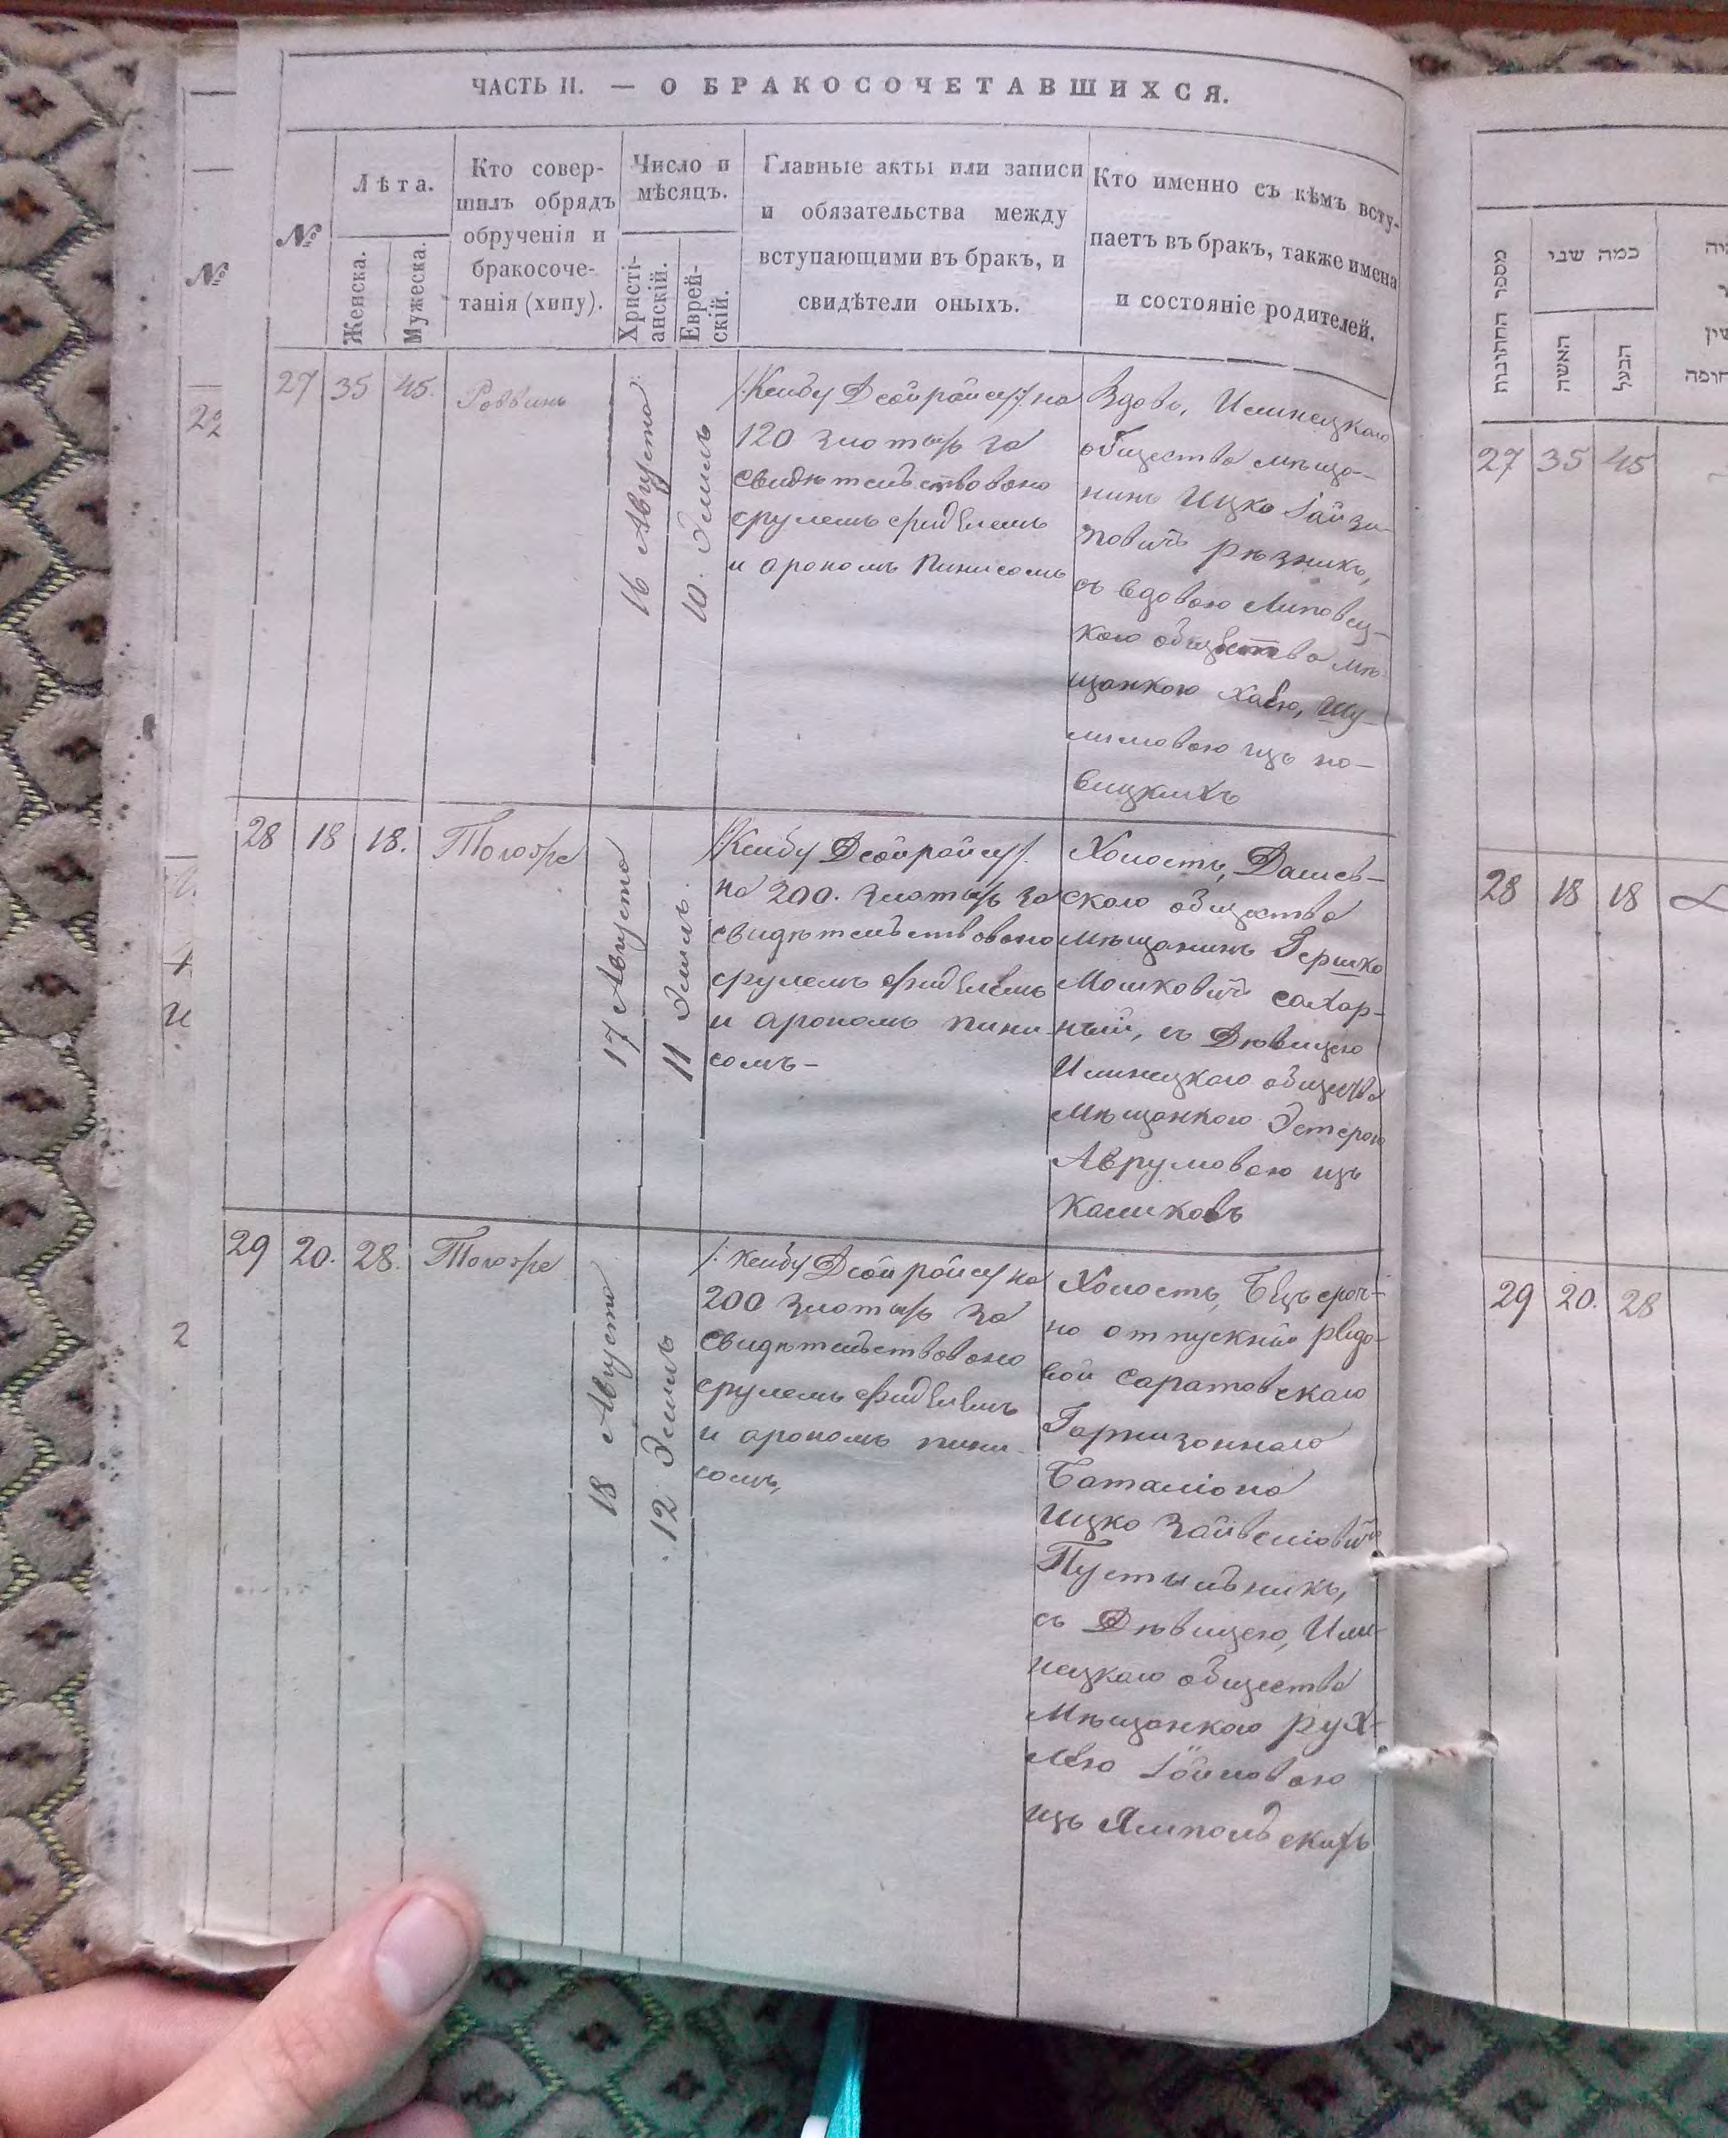 ЧАСТЬ II. — О БРАКОСОЧЕТАВШИХСЯ.
№
Лѣта.
Женска.
Мужеска.
Кто совер-
шилъ обрядъ
обрученія и
бракосоче-
танія (хипу).
Число и
мѣсяцъ.
Христі-
анскій.
Еврей-
скій.
Главные акты или записи
и обязательства между
вступающими въ бракъ, и
свидѣтели оныхъ.
Кто именно съ кѣмъ всту-
паетъ въ бракъ, также имена
и состояніе родителей.
27 35 45. Раввинъ
16 Августа
10. Элюль
на
120 злотыхъ за
свидѣтельствовано
срулемъ
и арономъ Пинисомъ
Вдовъ, Илинецкаго
общества мѣща-
нинъ Ицко
рѣзникъ,
съ вдовою Липовец-
каго общества мѣ-
щанкою Хавою, Шу-
лимовою изъ но-
вицкихъ
28 18 18. Тотоже
17 Августа
11 Элюль.
на 200. злотыхъ за
свидѣтельствовано
срулемъ
и арономъ пини-
сомъ-
Холостъ, Дашев-
скаго общества
мѣщанинъ Гершко
Мошковичъ сахар-
ный, съ Дѣвицею
Илинецкаго общества
Мѣщанкою Эстерою
Аврумовою изъ
Каминковъ
29 20. 28. Тотоже
18 Августа
12 Элюль
на
200 злотыхъ за
свидѣтельствовано
срулемъ
и арономъ пини-
сомъ,
Холостъ, Безсроч-
но отпускной рядо-
вой Саратовскаго
Гарнизоннаго
Баталіона
Ицко Зайвелiовичъ
Пустыльникъ,
съ Дѣвицею, Или-
нецкаго общества
Мѣщанкою рух-
лею
изъ Ямпольскихъ
№
2
מספר החתונות
כמה שני
האשה
הבעל
27 35 45
28 18 18
29 20. 28